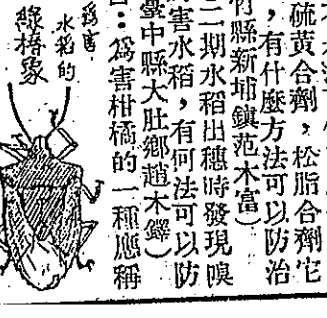 硫黃合劑，松脂合劑它
，有什麼方法可以防治
竹縣新埔鎮范木富）
二期水稻出穗時發現嗅
害水稻，有何法可以防
臺中縣大肚鄉趙木鐸）
：爲害柑橘的一種應稱
爲害
水稻的
綠椿象